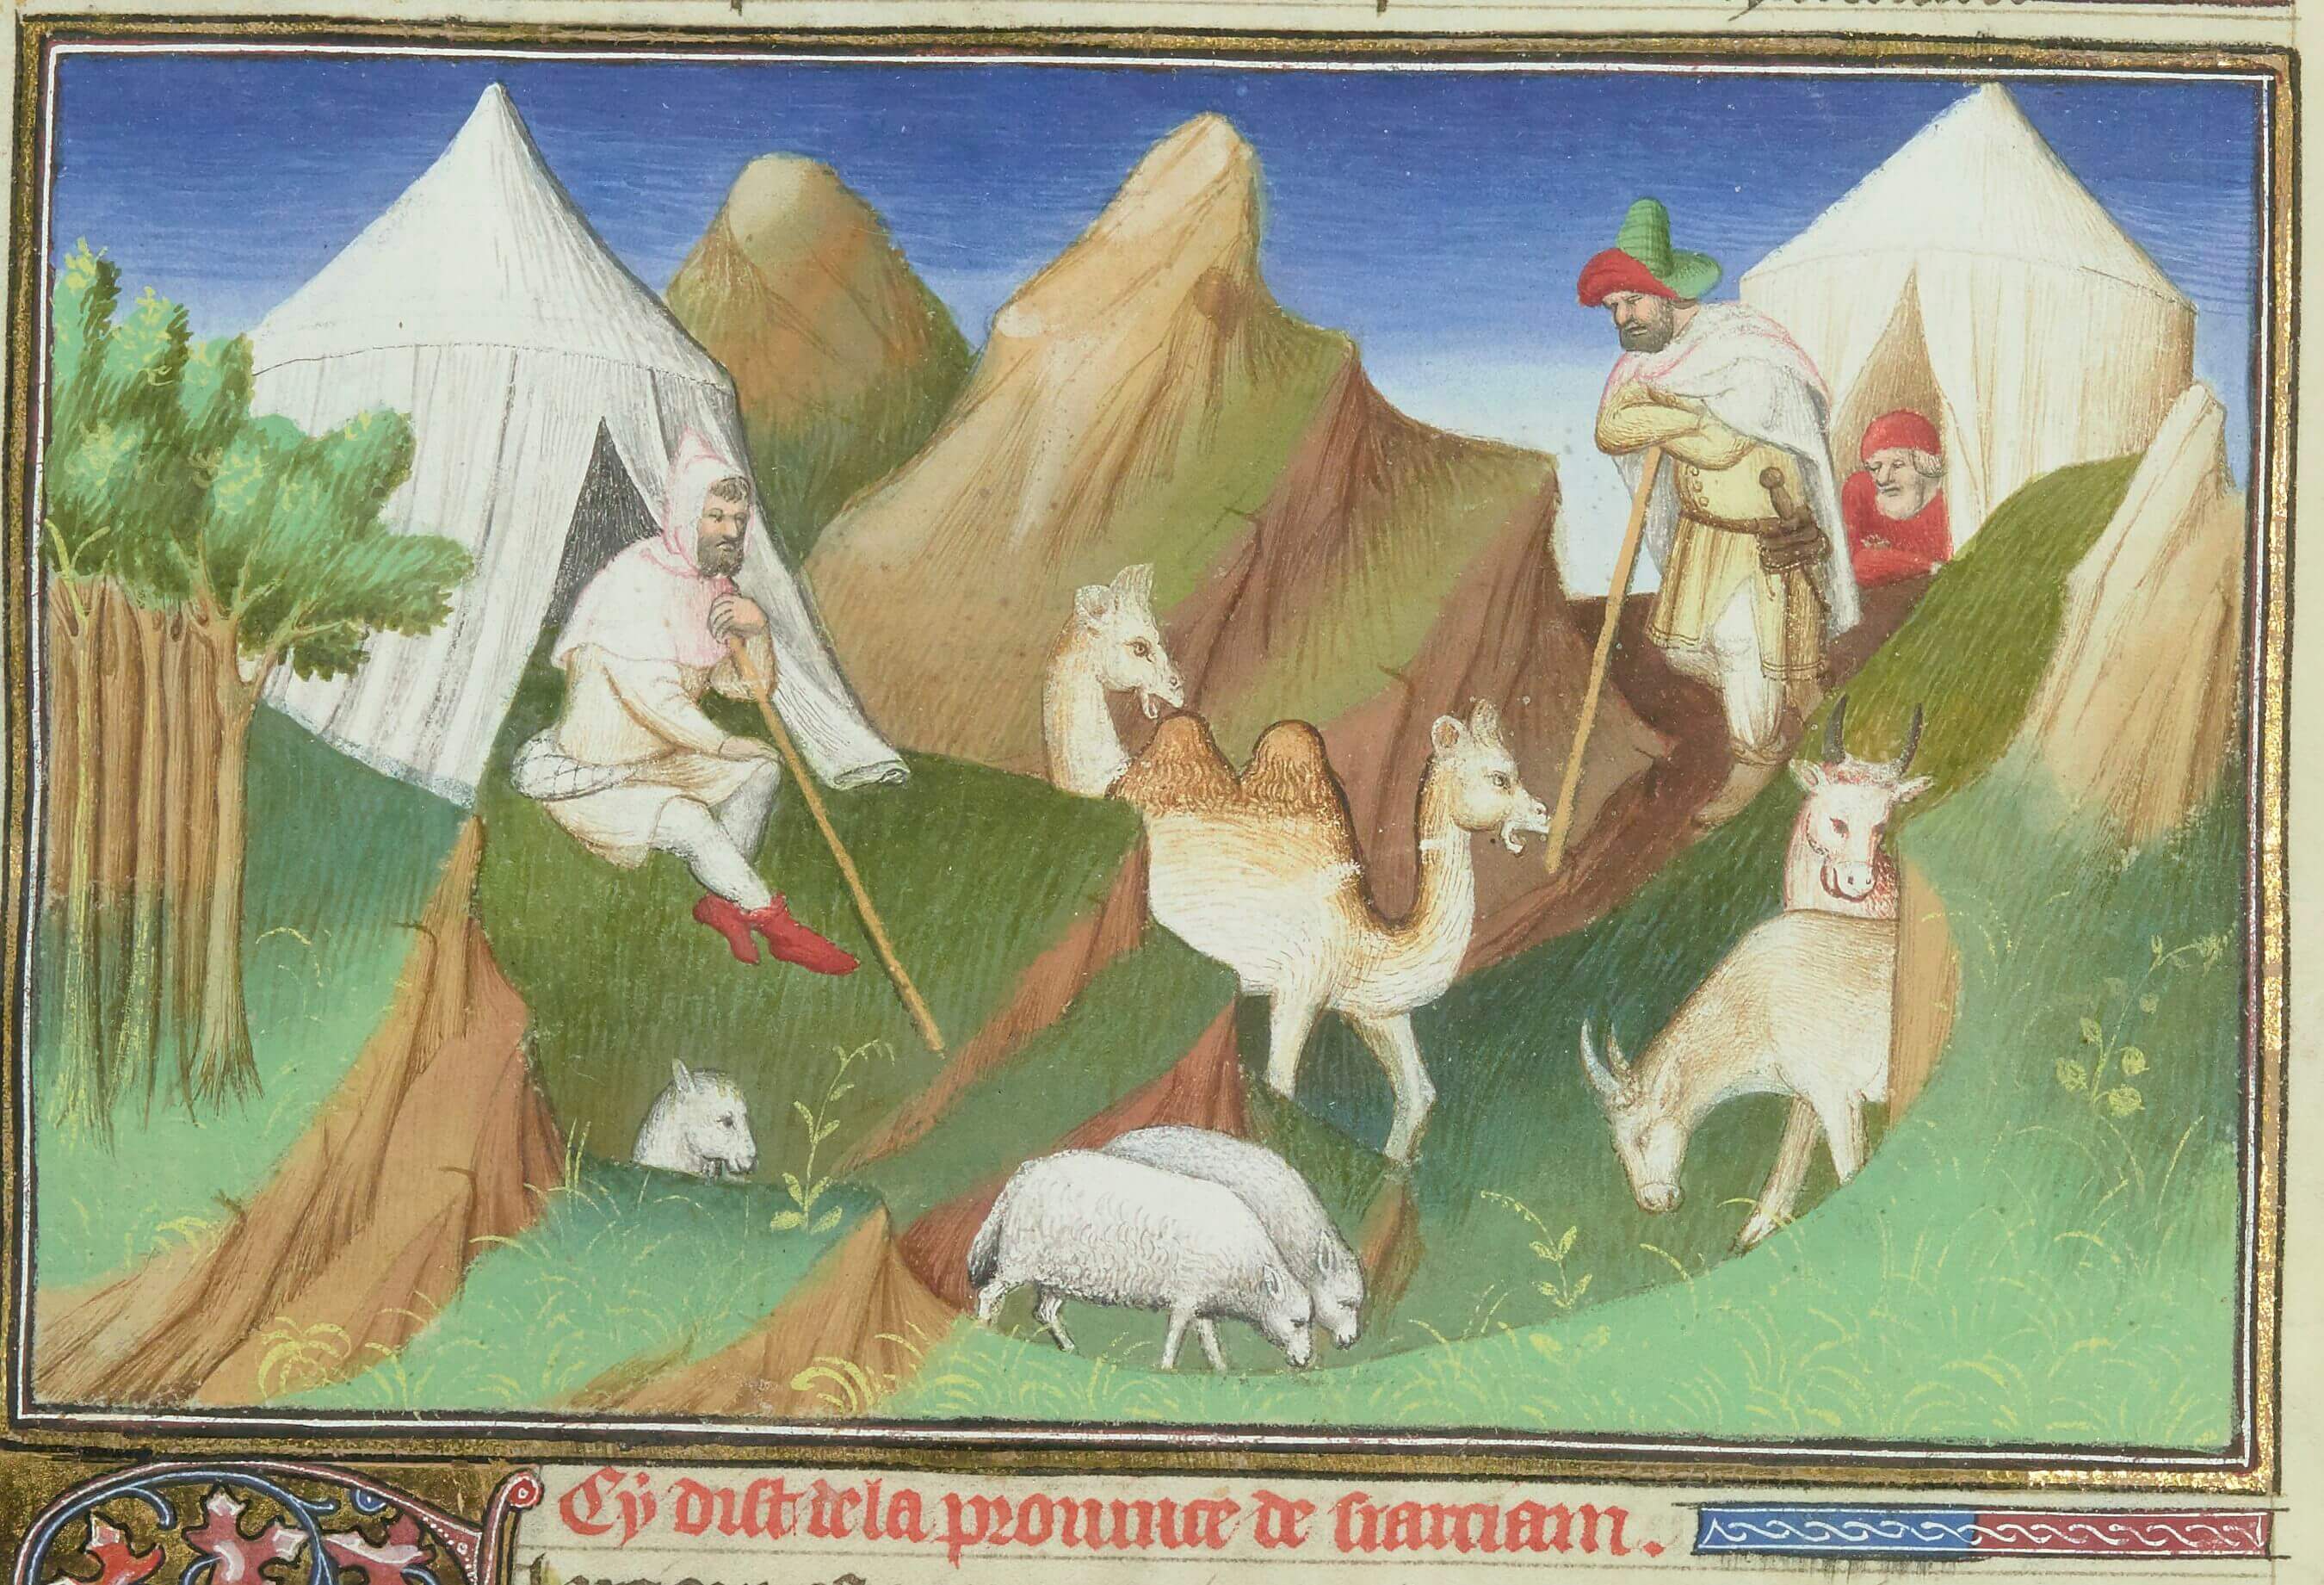 Cÿ dist dela prouince de siarciam.